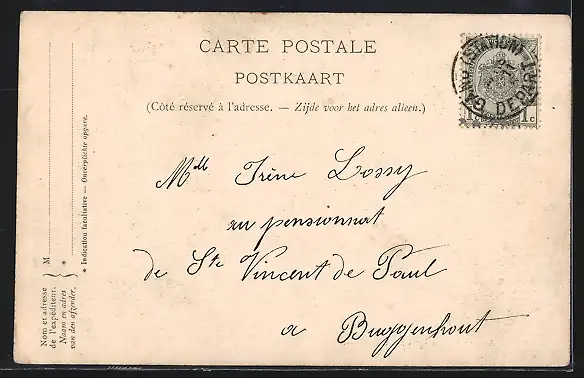 CARTE POSTALE
POSTKAART
(Côté réservé à l'adresse. — Zijde voor het adres alleen.)
Mdlle Irène Lossy
au pensionnat
de Ste Vincent de Paul
a Buggenhout
Nom et adresse
de l'expéditeur.
Naam en adres
van den afzender.
M
*
* Indication facultative — Onverplichte opgave.
GAND (STATION)
DEPART
1c